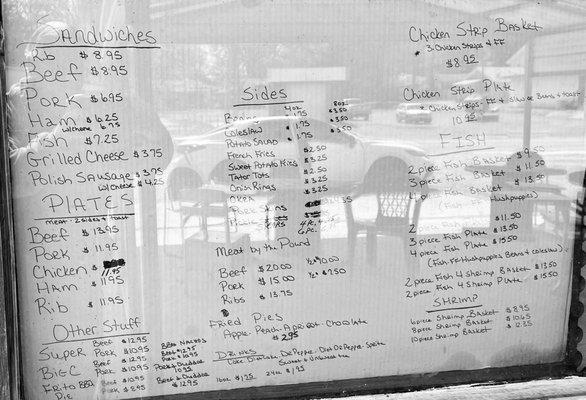 Sandwiches
Rib $8.95
Beef $8.95
Pork $6.95
Ham $6.25
w/cheese 6.75
Fish $7.25
Grilled Cheese $3.75
Polish Sausage $3.95
w/cheese $4.25
PLATES
meat - 2 sides & toast
Beef $13.95
Pork $11.95
Chicken 11.95
Ham 11.95
Rib $11.95
Other Stuff
Super Beef $12.95
Pork $10.95
Big C Beef $12.95
Pork $10.95
Frito BBQ Pie Beef
Pork $8.95
Beef Nachos $12.95
Pork $10.95
Pork & Cheddar $10.95
Beef & Cheddar $12.95
Sides
4oz 8oz
Beans $1.75 $3.50
Coleslaw $1.75 $3.50
Potato Salad $1.75 $3.50
French Fries $2.50
Sweet Potato Fries $3.25
Tator Tots $2.50
Onion Rings $3.25
Okra $3.25
Meat by the Pound
Beef $20.00 1/2 $10.00
Pork $15.00 1/2 $7.50
Ribs $13.75
Fried Pies
Apple - Peach - Apricot - Chocolate
$2.95
Drinks
Coke Dr Pepper - Diet Dr Pepper - Sprite
Sweet & Unsweet tea
16oz $1.75 24oz $1.95
Chicken Strip Basket
3 Chicken Strips & FF
$8.95
Chicken Strip Plate
Chicken Strips - FF & Slaw or Beans & toast
10.95
FISH
2 piece Fish Basket $9.50
3 piece Fish Basket $11.50
4 piece Fish Basket $13.50
(Fish FF & Hushpuppies)
2 piece Fish Plate $11.50
3 piece Fish Plate $13.50
4 piece Fish Plate $15.50
(Fish FF & Hushpuppies Beans & Coleslaw)
2 piece Fish 4 Shrimp Basket $13.50
2 piece Fish 4 Shrimp Plate $15.50
SHRIMP
6 piece Shrimp Basket $8.95
8 piece Shrimp Basket $10.65
10 piece Shrimp Basket $12.35